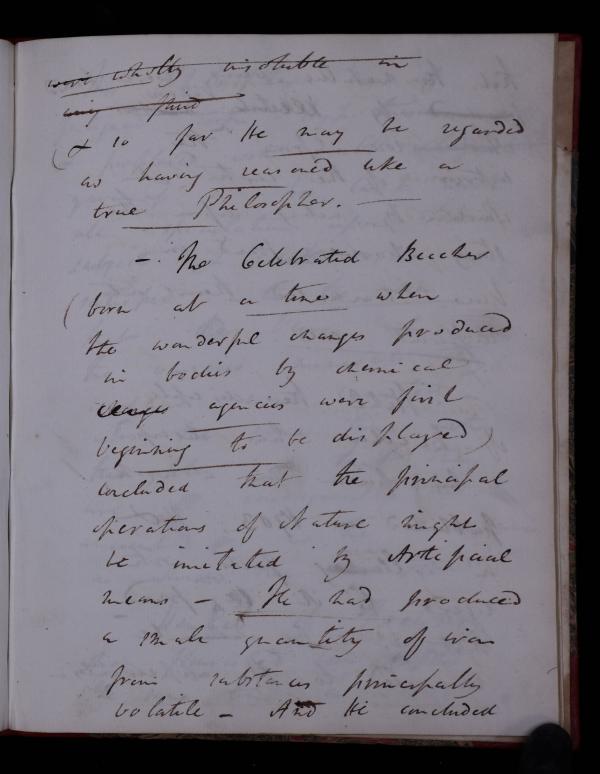 were wholly insoluble in
any fluid
& so far He may be regarded
as having reasoned like a
true Philosopher. —
— The Celebrated Beccher
(born at a time when
the wonderful changes produced
in bodies by chemical
changes agencies were first
beginning to be displayed)
concluded that the principal
operations of Nature might
be imitated by Artificial
means — He had produced
a small quantity of iron
from substances principally
volatile — And He concluded